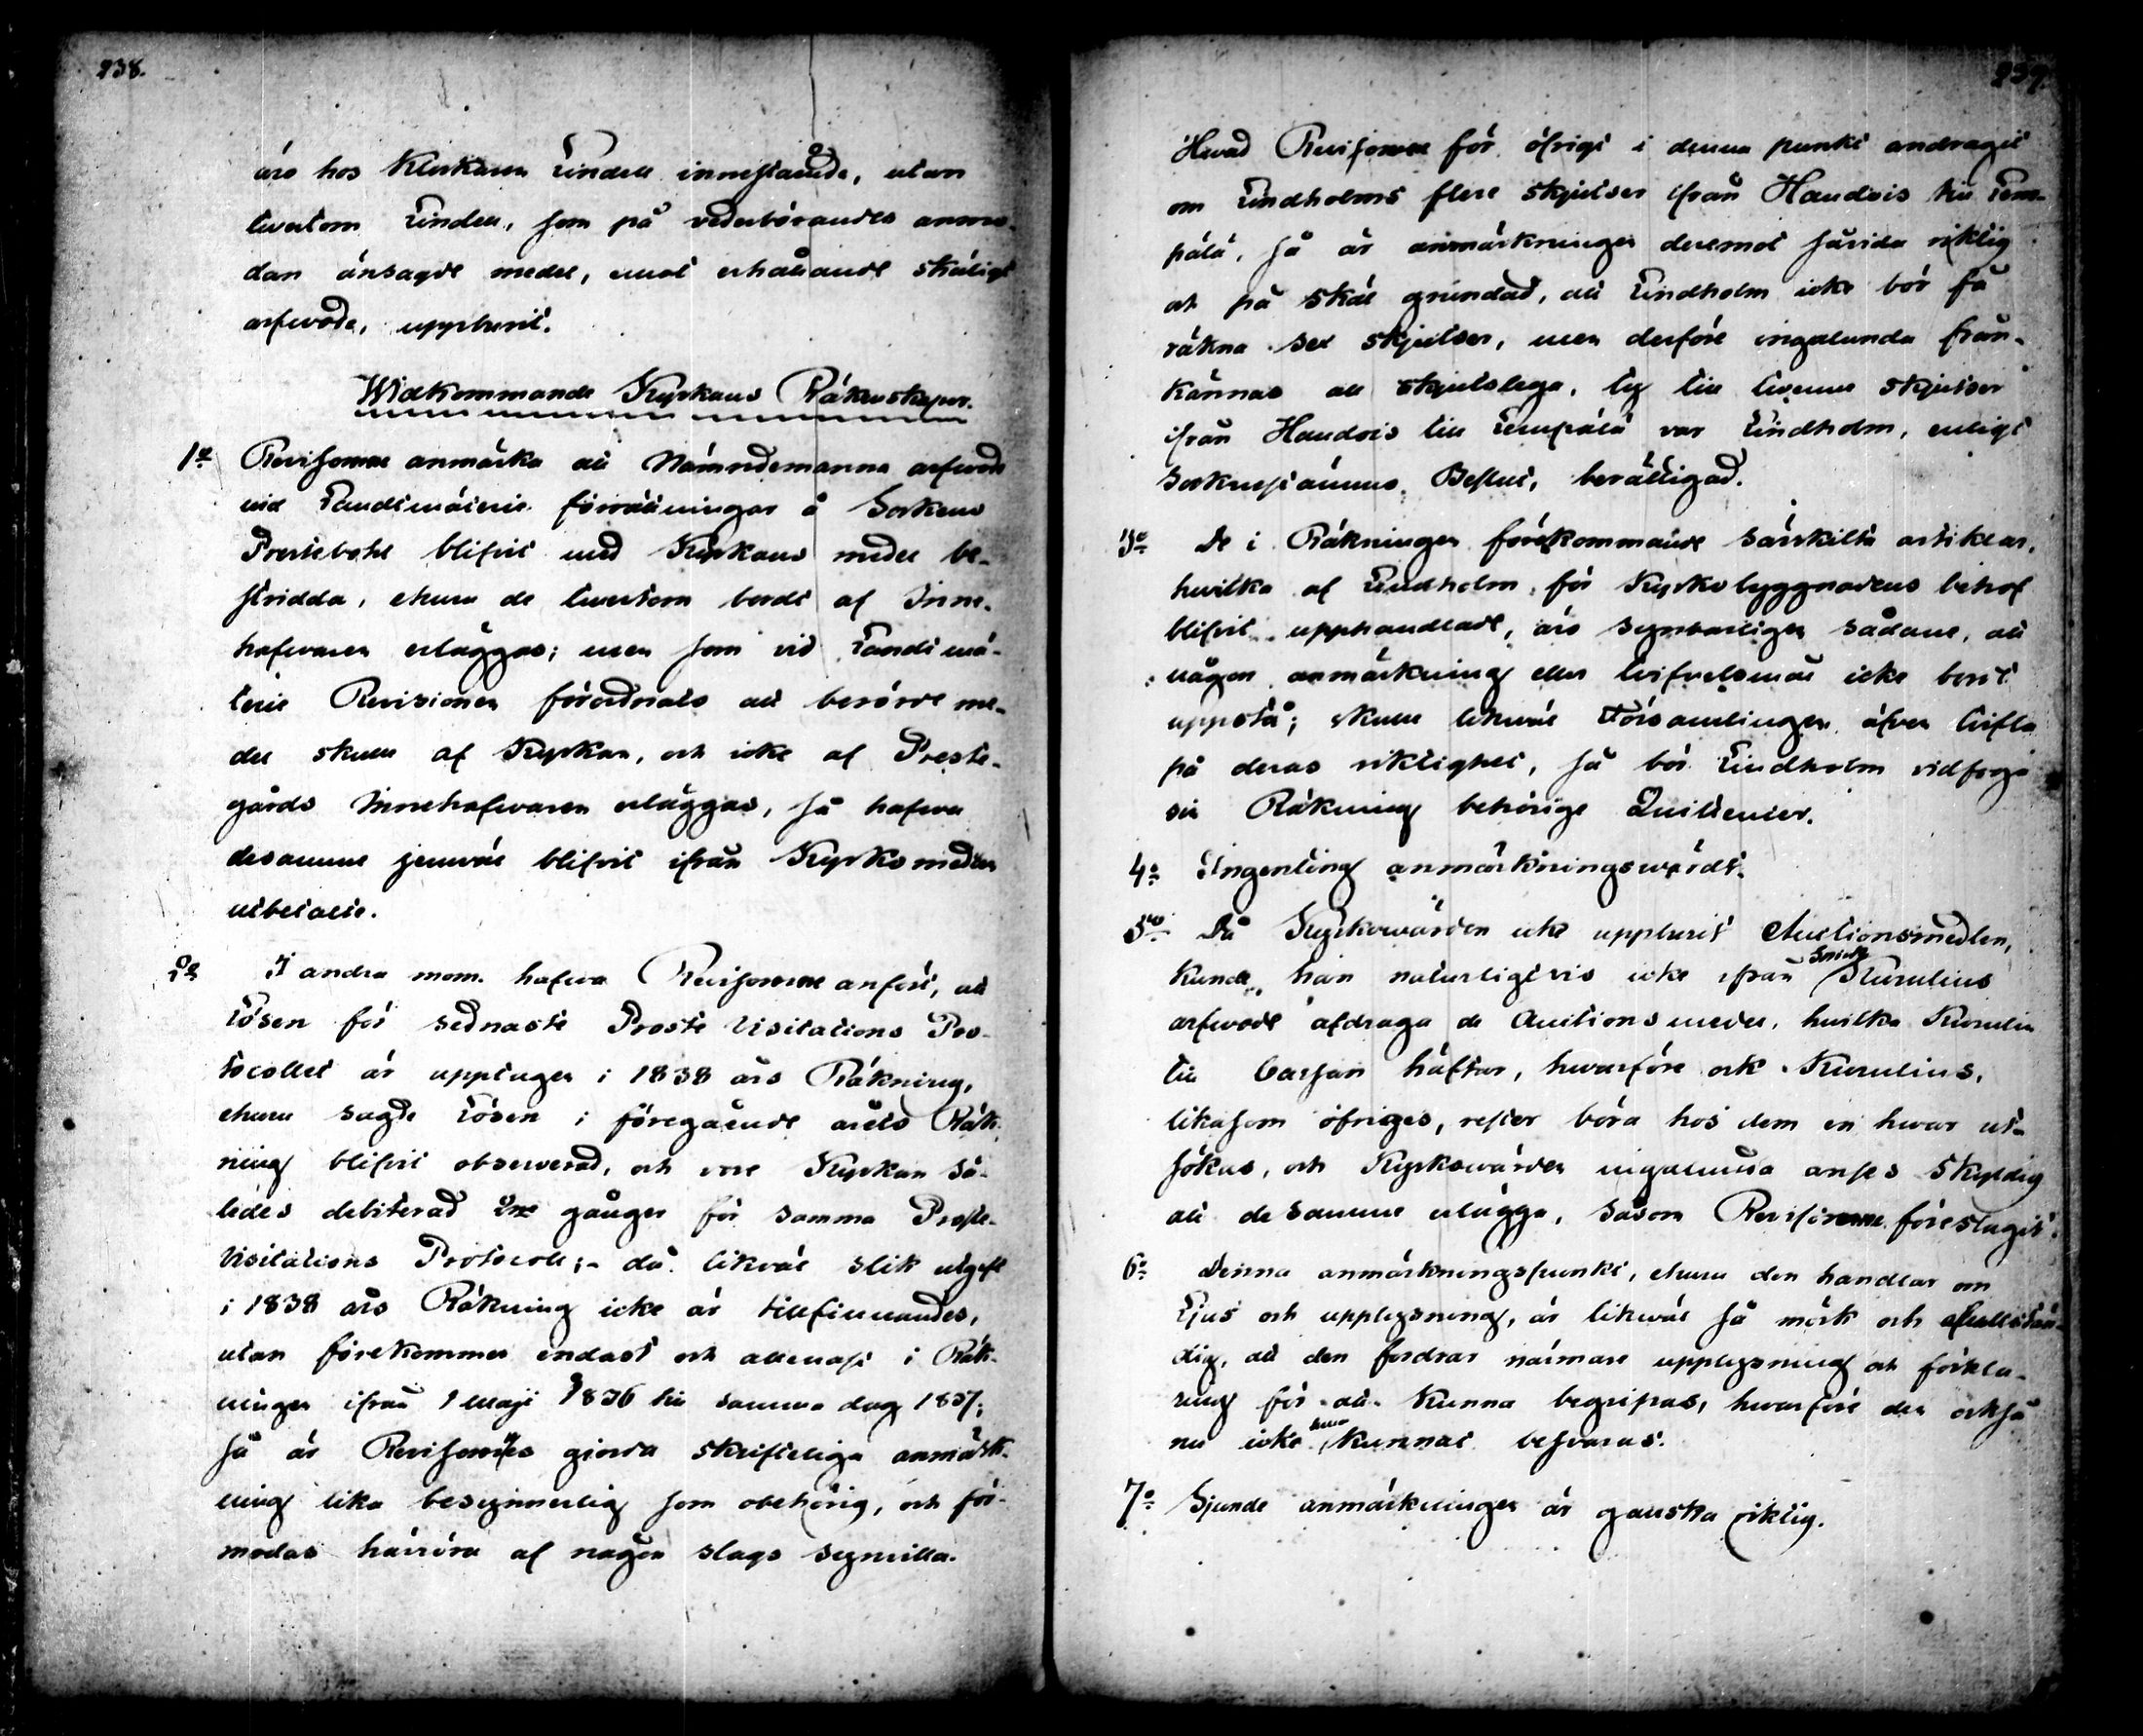 238.
äro hos Klockaren Lindell innestående, utan
tvertom Lindell, som på vederbörandes anmo-
dan änsagde medel, emot erhållande skäligt
arfwode, uppburit.
Widkommande Kyrkans Räkenskaper.
1o Revisorerne anmärka att Nämndemanna arfwode
vid Landtmäterie förrättningar å Sockens
Prestebohl blifvit med Kyrkans medel be-
stridda, ehuru de tvertom bordt af Inne-
hafwaren erläggas; men som vid Landtmä-
terie Revisionen förordnats att berörde me-
del skulle af Kyrkan, och icke af Preste-
gårds Innehafwaren erläggas, så hafwa
desamme jemväl blifvit ifrån Kyrkomedlen
utbetalte.
2o I andra mom. hafwa Revisorerne anfört, att
Lösen för sednaste Prosте Visitations Pro-
tocollet är upptagen i 1838 års Räkning,
ehuru sagde Lösen i föregående årets Räk-
ning blifvit observerad, och vore Kyrkan så-
ledes debiterad 2ne gånger för samma Proste-
Visitations Protocoll;- då likväl slik utgift
i 1838 års Räkning icke är tillfinnandes,
utan förekommer endast och allenast i Räk-
ningen ifrån 1 Maji 1836 till samma dag 1837;
så är Revisorernes gjorda skrifteliga anmärk-
ning lika besynnerlig som obehörig, och för-
modas härröra af någon slags synvilla.
239.
Hvad Revisorerne för öfrigt i denna punkt andragit
om Lindholms flere skjutser ifrån Haudois till Lem-
pälä, så är anmärkningen deremot såvida riktig
och på skäl grundad, att Lindholm icke bör få
räkna sex skjutser, men derföre ingalunda från-
kännas all skjutslega, ty till tvenne skjutser
ifrån Haudois till Lempälä var Lindholm, enligt
Sockenstämmo Beslut, berättigad.
3o De i Räkningen förekommande särskilta artiklar,
hvilka af Lindholm för Kyrkobyggnadens behof
blifvit upphandlade, äro synbarligen sådane, att
någon anmärkning eller tvifvelsmål icke bordt
uppstå; skulle likwäl Församlingen äfven tvifla
på deras riktighet, så bör Lindholm vidfoga
sin Räkning behörige Quittencer.
4o Ingenting anmärkningswärdt.
5o Då Kyrkowärden icke uppburit Auctionsmedlen,
Kunde han naturligtvis icke ifrån Kurulius
arfwode afdraga de Auctionsmedel, hvilka
till Cassan häftar, hwarföre ock Kurulius,
likasom öfriges, rester böra hos dem en hwar ut-
sökas, och Kyrkowärden ingalunda anses skyldig
att desamme erlägga, såsom Revisorerne föreslagit.
6o Denna anmärkningspunkt, ehuru den handlar om
Ljus och upplysning, är likwäl så mörk och
dig, att den fordrar närmare upplysning och förkla-
ring för att kunna begripas, hwarföre den också
nu icke kunnat besvaras.
7o Sjunde anmärkningen är ganska riktig.